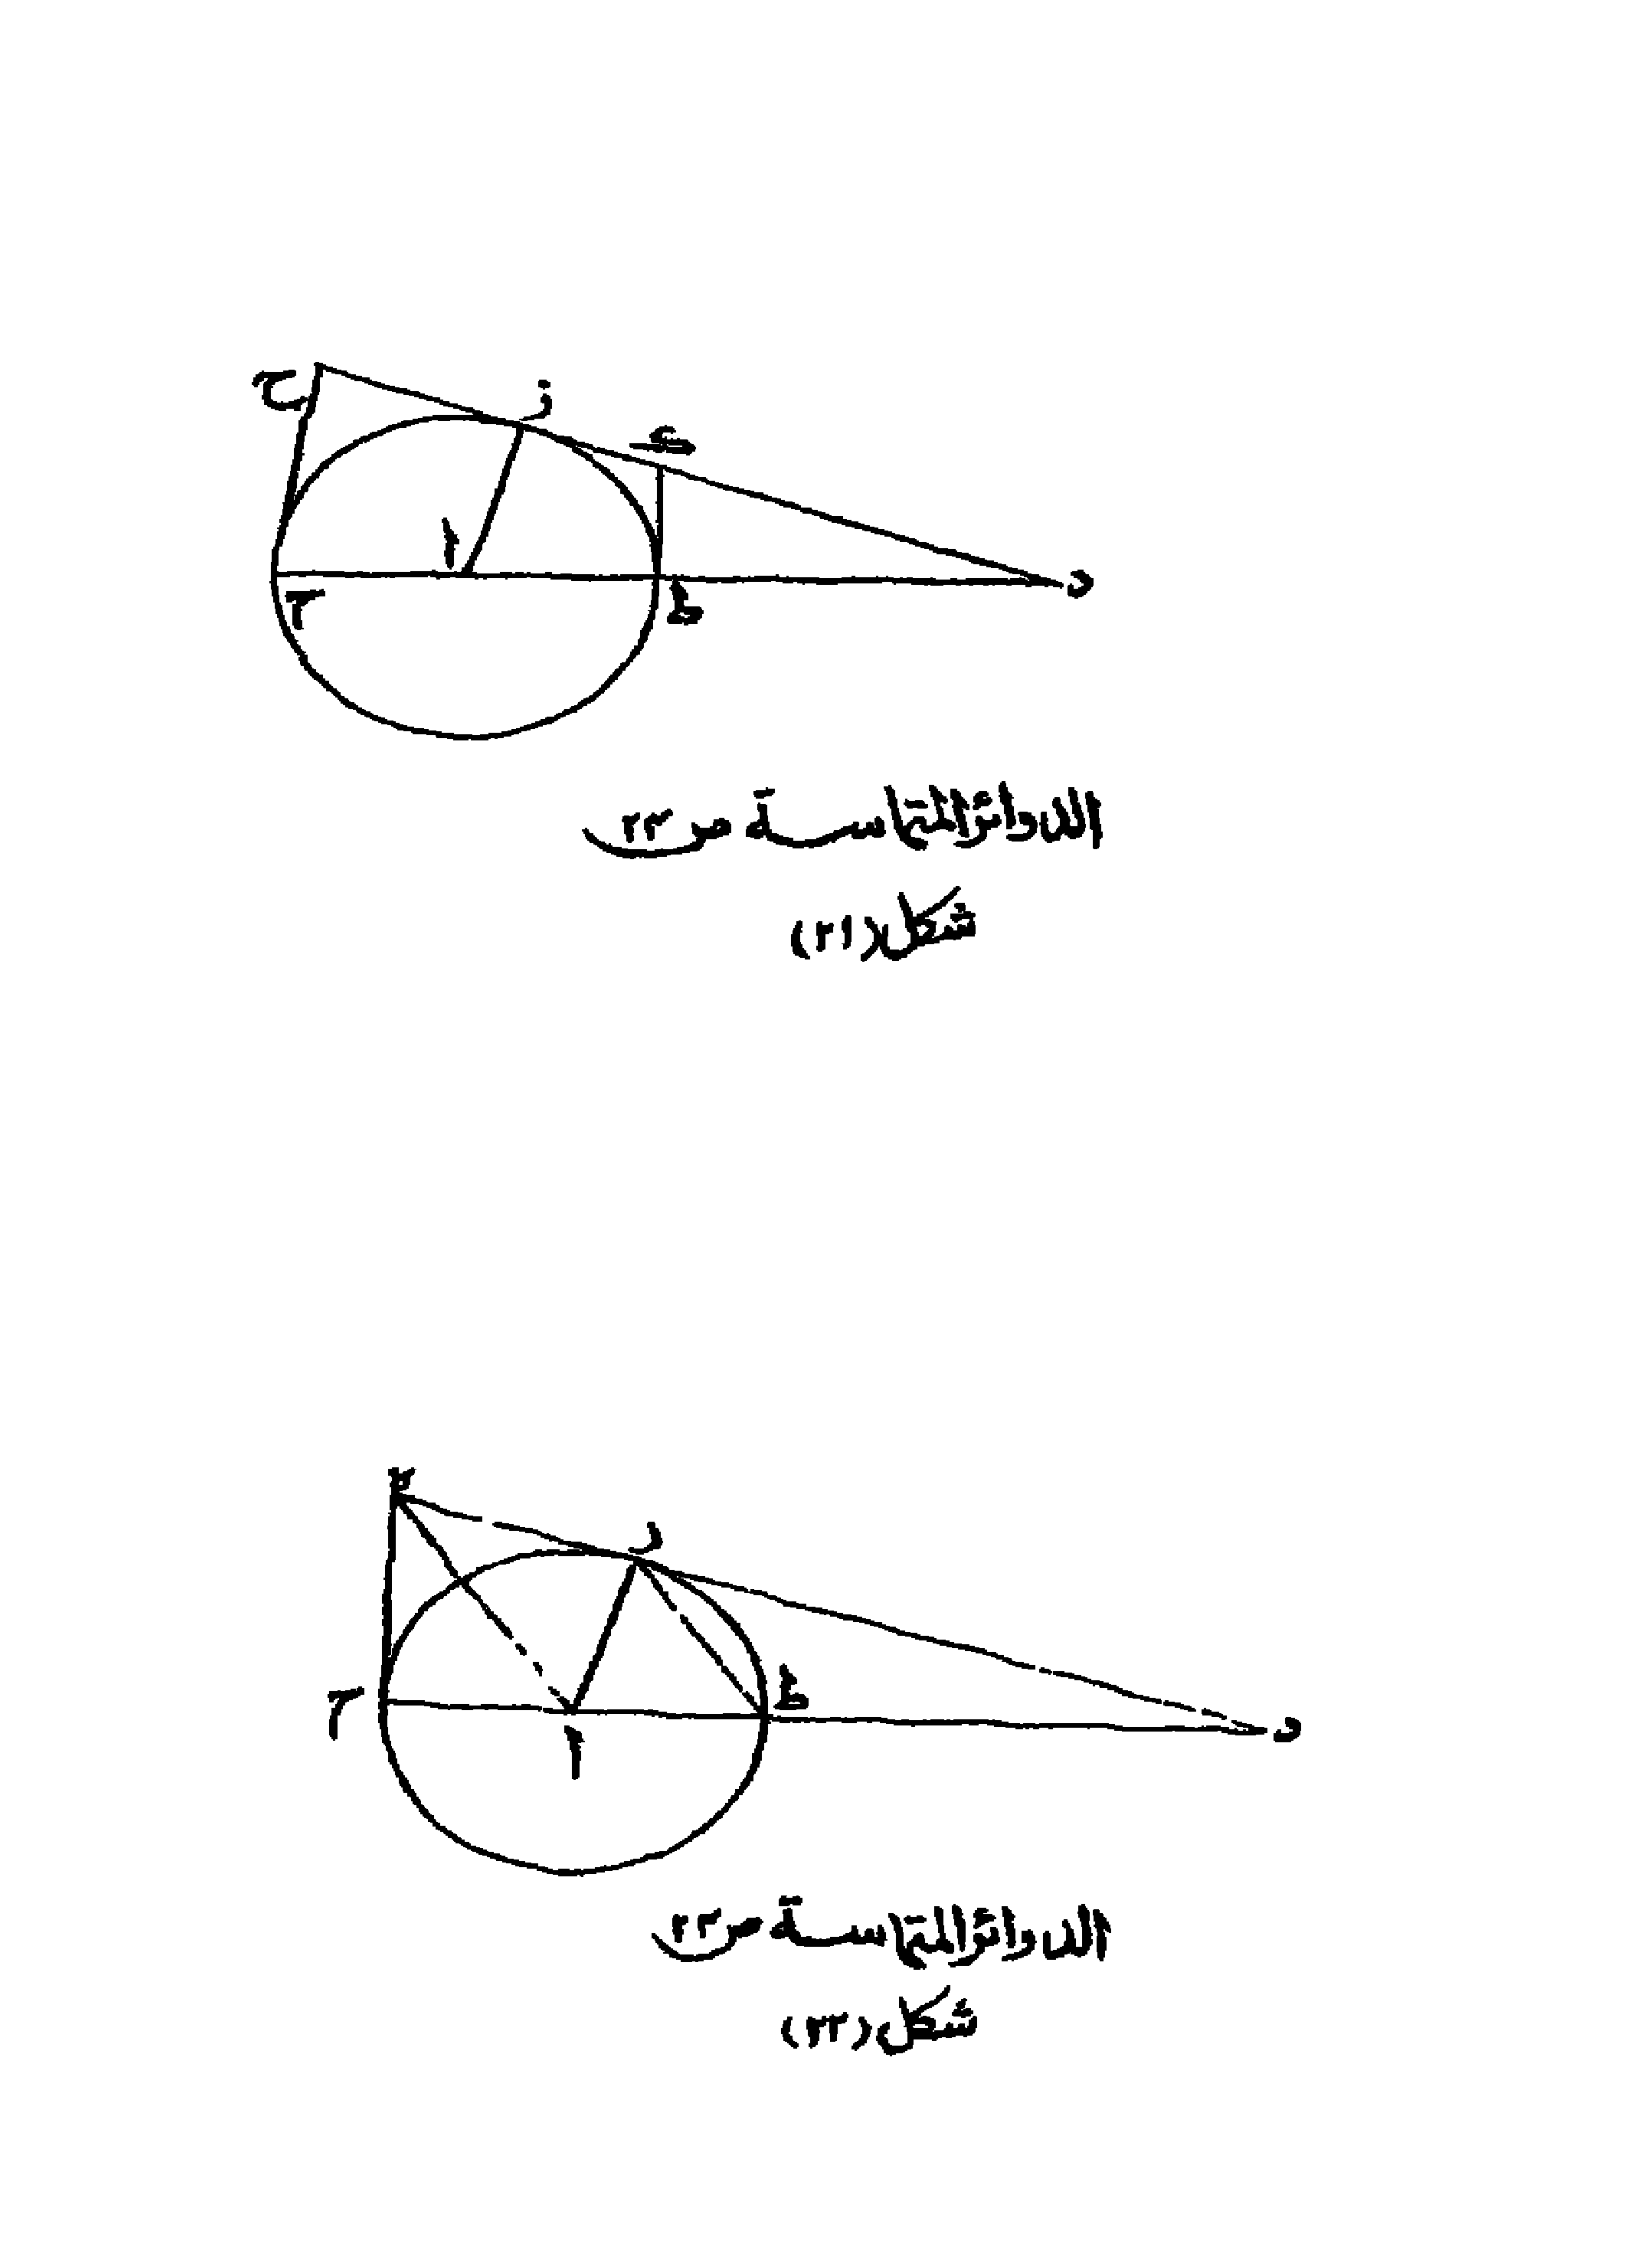 ح
ز
ى
ا
ط
د
الدوائر المتماسة ص ٢٣
شكل (٢١)
ز
ط
ا
د
الدوائر المتماسة ص ٢٣
شكل (٢٢)